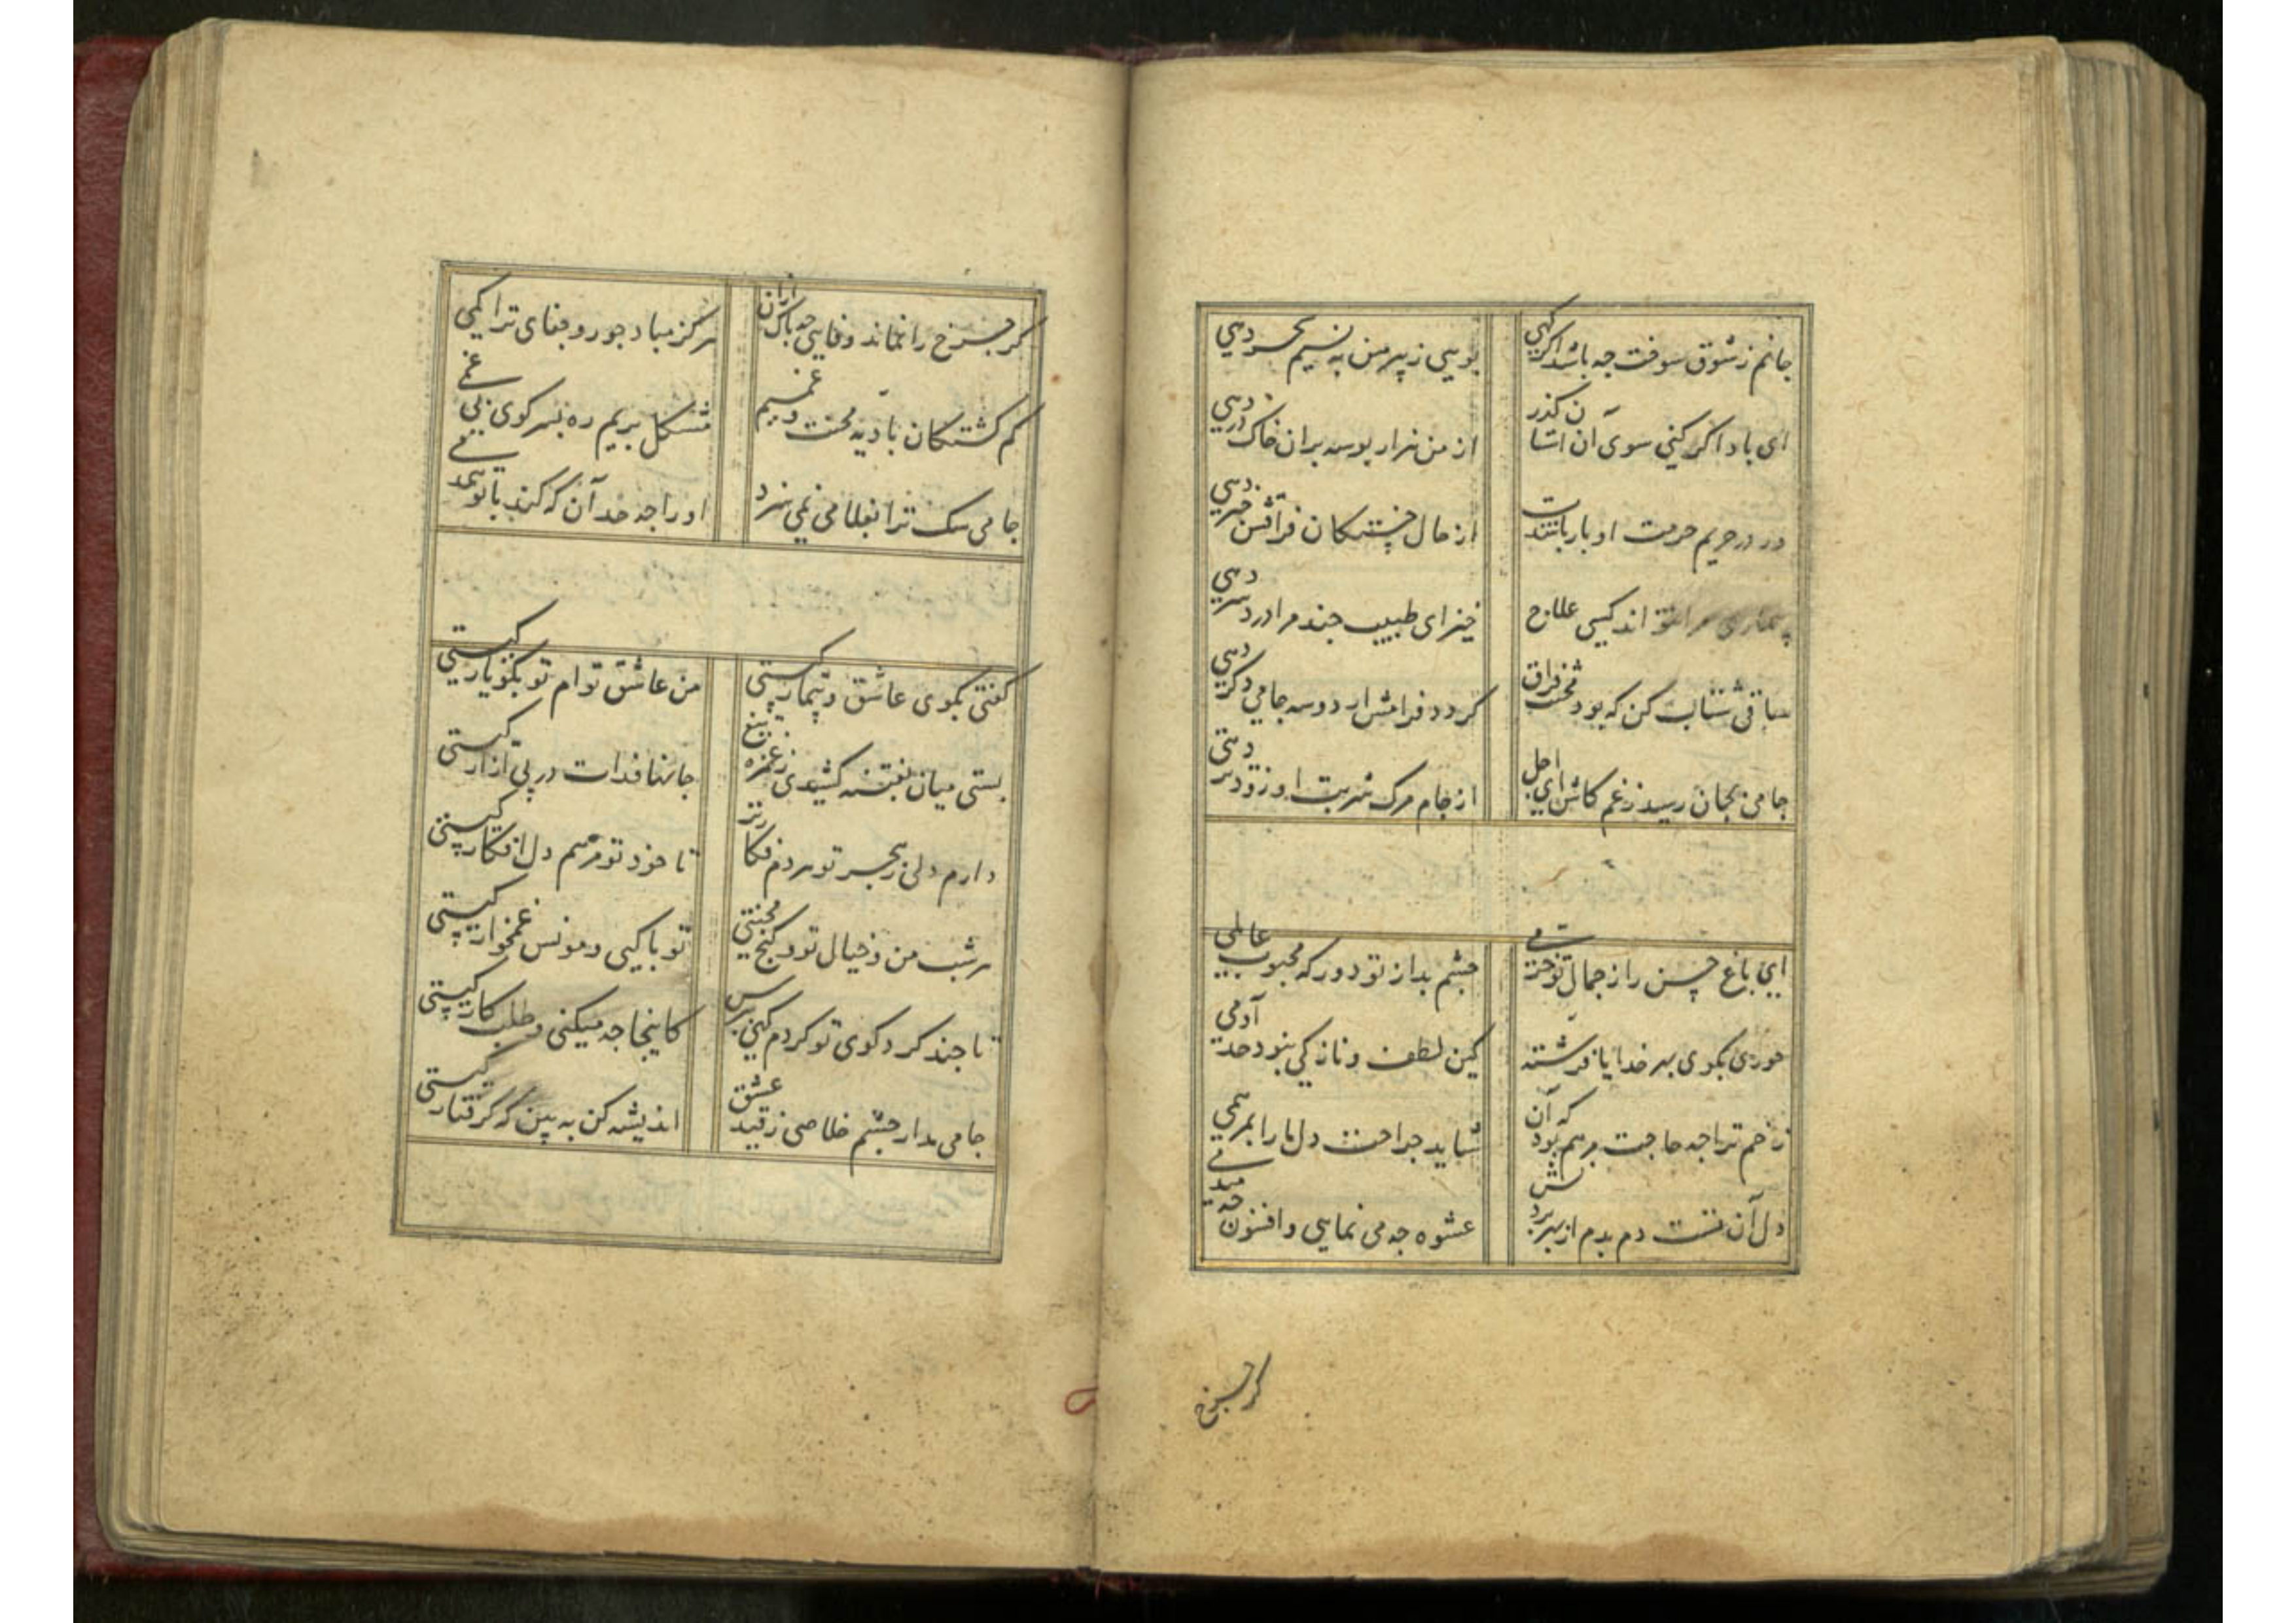 جانم ز شوق سوخت جه باشد اکر کهی بویی ز پیرهن به نسیم سحر دهی
ای باد اکر کنی سوی آن آستان کذر از من هزار بوسه بران خاک در دهی
ور در حریم حرمت او بار باشدت از حال خستکان فراقش خبر دهی
بیماری مرا نتواند کسی علاج خیز ای طبیب جند مرا درد سر دهی
ساقی شتاب کن که بود محنت فراق کردد فرامش ار دو سه جامی دکر دهی
جامی بجان رسید ز غم کاش ای اجل از جام مرک شربت او زودتر دهی
ای باغ حسن را ز جمال تو خرمی جشم بد از تو دور که محبوب عالمی
حوری بکوی بهر خدا یا فرشته کین لطف و نازکی نبود حد آدمی
زخم ترا جه حاجت مرهم بود که آن شاید جراحت دل ما را بمرهمی
دل آن تست دم بدم از بهر بردنش عشوه جه می نمایی و افسون جه میدمی
کر جرخ
کر جرخ را نماند وفایی جه باک ازان هرکز مباد جور و جفای ترا کمی
کم کشتکان بادیه محنت و غمیم مشکل بریم ره بسر کوی بی غمی
جامی سک ترا بغلامی نمی سزد او را جه حد آن که کند با تو همدمی
کفتی بکوی عاشق و بیمار کیستی من عاشق توام تو بکو یار کیستی
بستی میان بفتنه کشیدی ز غمزه تیغ جانها فدات در پی آزار کیستی
دارم دلی ز هجر تو هر دم فکارتر تا خود تو مرهم دل افکار کیستی
هر شب من و خیال تو و کنج محنتی تو با کیی و مونس غمخوار کیستی
تا جند کرد کوی تو کردم کهی بپرس کاینجا جه میکنی و طلب کار کیستی
جامی مدار جشم خلاصی ز قید عشق اندیشه کن به بین که کرفتار کیستی